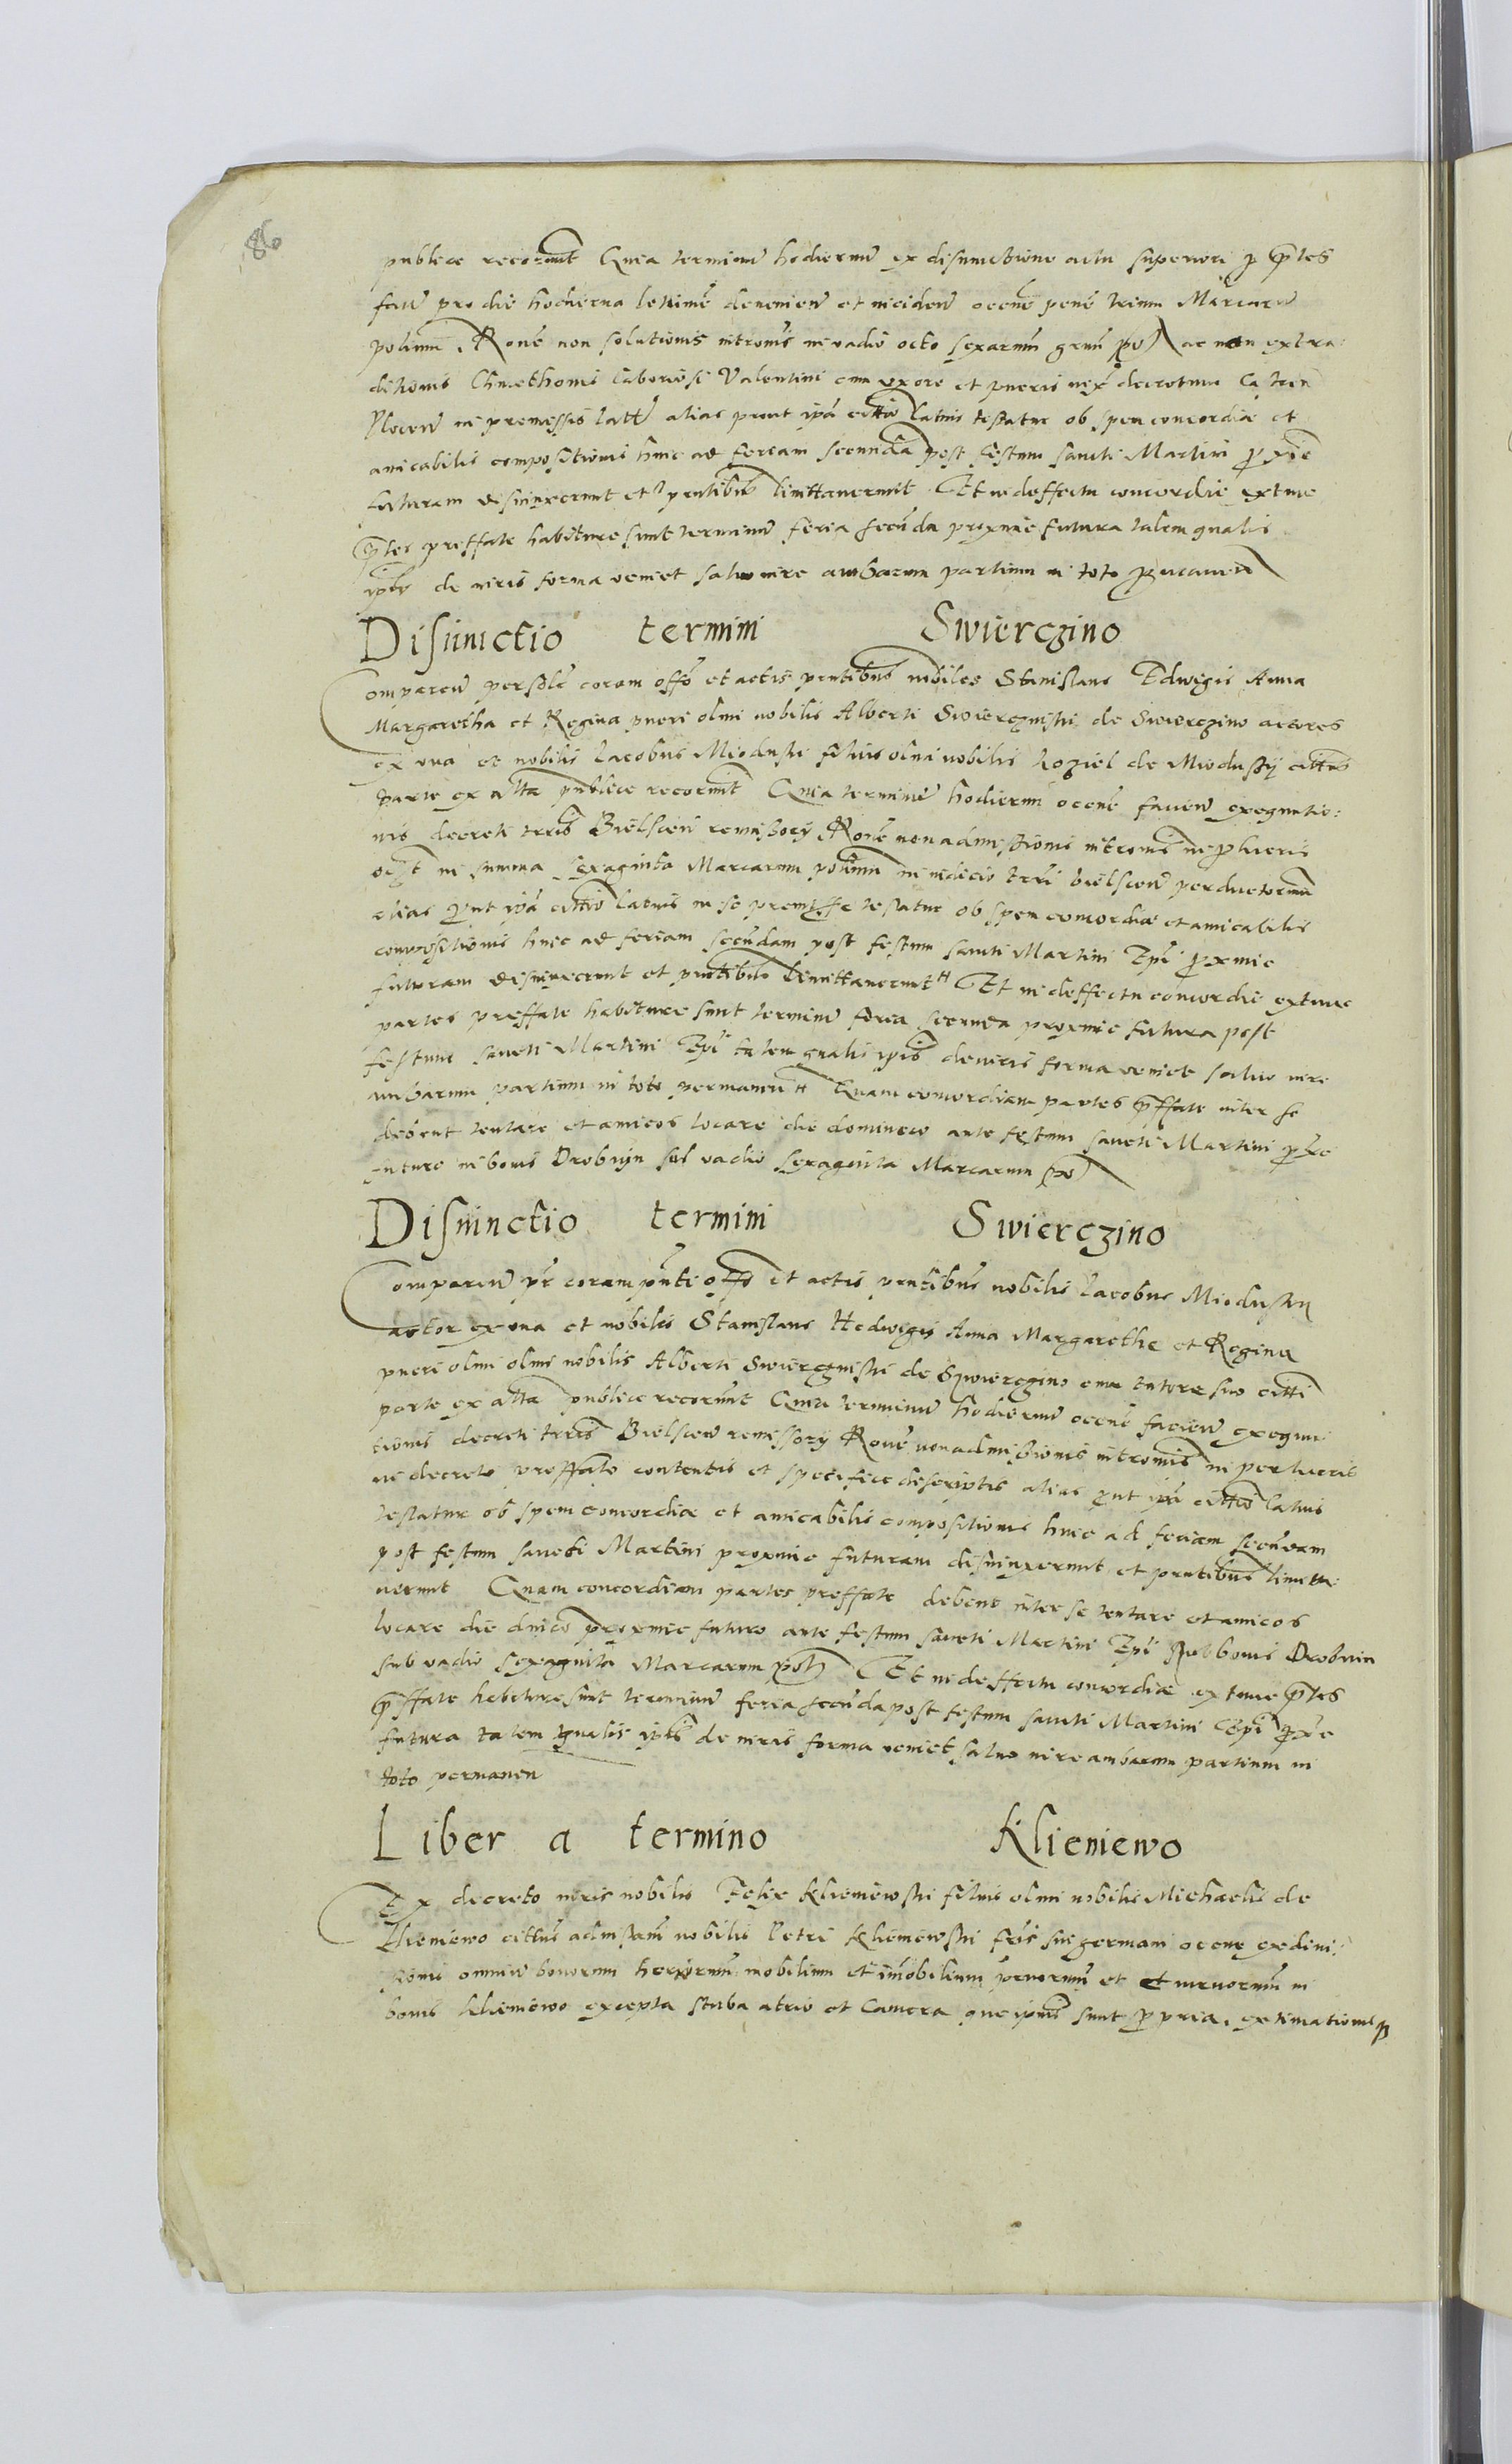 86
publice recorunt Quia terminum hodiernum ex disiunctione actu superiori p prtes
fact pro die hodierna letime devenien et inciden ocene pene trium Marcarum
polium. Rone non solutionis introms in vadio octo sexarum grum pol ac non extra:
ditionis Cmethonis laboriosi Valentini cum uxore et pueris decretum
Plocen in premissis alias prout ipa cittio latius testatur ob spem concordiae et
amicabilis compositionis hinc ad feriam secunda post festum sancti Martini pxie
futuram disiunxerunt et pntibus limittaverunt Et in deffectu concordie extunc
prtes preffate habiture sunt terminum feria secunda proxime futura talem qualis
ipis de iuris forma veniet salvo iure ambarum partium in toto permanen
Disiunctio termini Swierczino
Comparen persole coram offo et actis pntibus nobiles Stanislaus Edwigis Anna
Margaretha et Regina pueri olmi nobilis Alberti Swierczinski de Swierczino actores
ex una et nobilis Jacobus Mioduski filius olmi nobilis de Miodussy cittus
parte ex alta publice recorunt Quia terminum hodiernum ocene facien exequutio:
nis decreti trris Bielscen remissorij Rone non admissionis introms in plucris
in summa sexaginta Marcarum polium in iudicio trri bielscen perductorum
alias put ipa cittio latius in se premisse testatur ob spem concordiae et amicabilis
compositionis hinc ad feriam secundam post festum sancti Martini Epi pxmie
futuram disiunxerunt et pntibus limittaverunt Et in deffectu concordie extunc
partes preffate habiture sunt terminum feria secunda proxmie futura post
festum sancti Martini Epi talem qualis ipis de iuris forma veniet salvo iure
ambarum partium in toto permanen Quam concordiam partes preffate inter se
debent tentare et amicos locare die dominico ante festum sancti Martini pxe
futuro in bonis Drobnin sub vadio sexaginta Marcarum pol
Disiunctio termini Swierczino
Comparen pr coram pnti offo et actis pntibus nobilis Jacobus Mioduski
actor ex una et nobiles Stanislaus Hedwigis Anna Margarethe et Regina
pueri olmi olmi nobilis Alberti Swierczinski de Swierczino cum tutore suo citti
parte ex alta publice recorunt Quia terminum hodiernum ocene facien exequu
tionis decreti trris Bielscen remissorij Rone non admissionis introms in perlucris
in decreto preffato contentis et specifice descriptis alias put ipa cittio latius
testatur ob spem concordiae et amicabilis compositionis hinc ad feriam secundam
post festum sancti Martini proxmie futuram disiunxerunt et pntibus limitta
verunt Quam concordiam partes preffate debent inter se tentare et amicos
locare die dnico proxmie futuro ante festum sancti Martini Epi bonis Drobnin
sub vadio sexaginta Marcarum pol Et in deffectu concordiae extunc prtes
preffate habiture sunt terminum feria secunda post festum sancti Martini Epi pxe
futura talem qualis ipis de iuris forma veniet salvo iure ambarum partium in
toto permanen
Liber a termino Klieniewo
Ex decreto iuris nobilis Felix Kliemiewski filius olmi nobilis Michaelis de
Klieniewo cittus ad instam nobilis Petri Kliemiewski fris sui germani ocene ex divi
sionis omnium bonorum mobilium et imobilium et et in
bonis Klieniewo excepta stuba atrio et Camera que ipius sunt ppria, extimationis